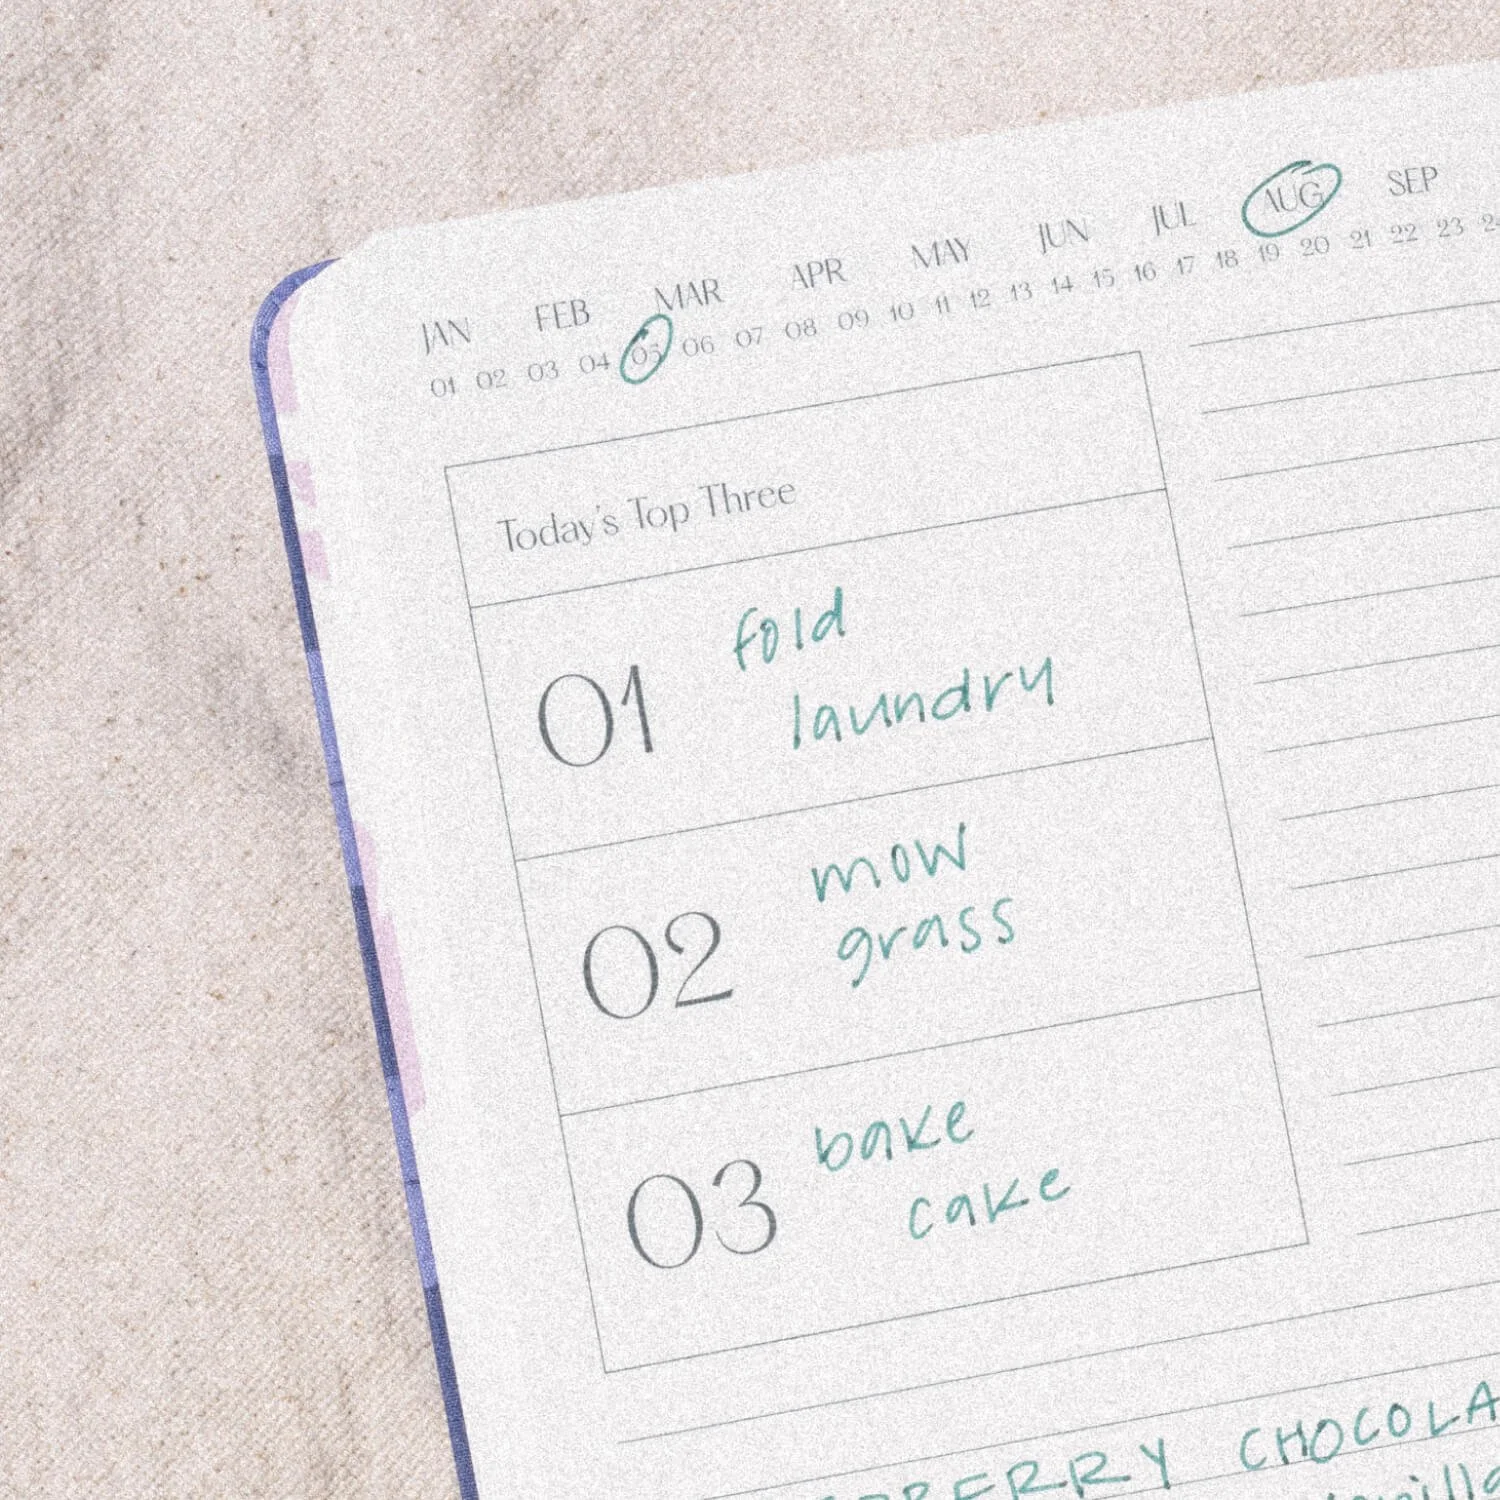 JAN FEB MAR APR MAY JUN JUL AUG SEP
01 02 03 04 05 06 07 08 09 10 11 12 13 14 15 16 17 18 19 20 21 22 23
Today's Top Three
01 fold
laundry
02 mow
grass
03 bake
cake